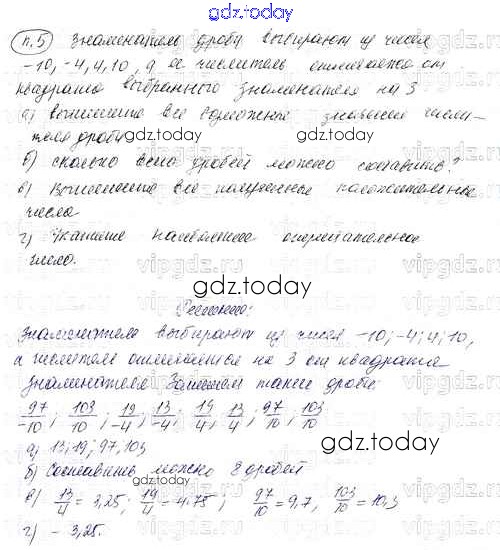 gdz.today
п.5 Знаменатель дроби выбирают из чисел
-10, -4, 4, 10, а её числитель отличается от
квадрата выбранного знаменателя на 3
а) выпишите все возможные значения числи-
теля дроби
gdz.today
б) сколько всего дробей можно составить?
в) Выпишите все полученные положительные
числа
г) Укажите наибольшее отрицательное
число.
gdz.today
Решение:
Знаменатель выбирают из чисел -10; -4; 4; 10,
а числитель отличается на 3 от квадрата
знаменателя. Запишем такие дроби:
97/-10; 103/-10; 19/-4; 13/-4; 19/4; 13/4; 97/10; 103/10
gdz.today
а) 13; 19; 97, 103
б) Составить можно 8 дробей
в) 13/4 = 3,25; 19/4 = 4.75; 97/10 = 9,7, 103/10 = 10,3
г) - 3,25.
gdz.today